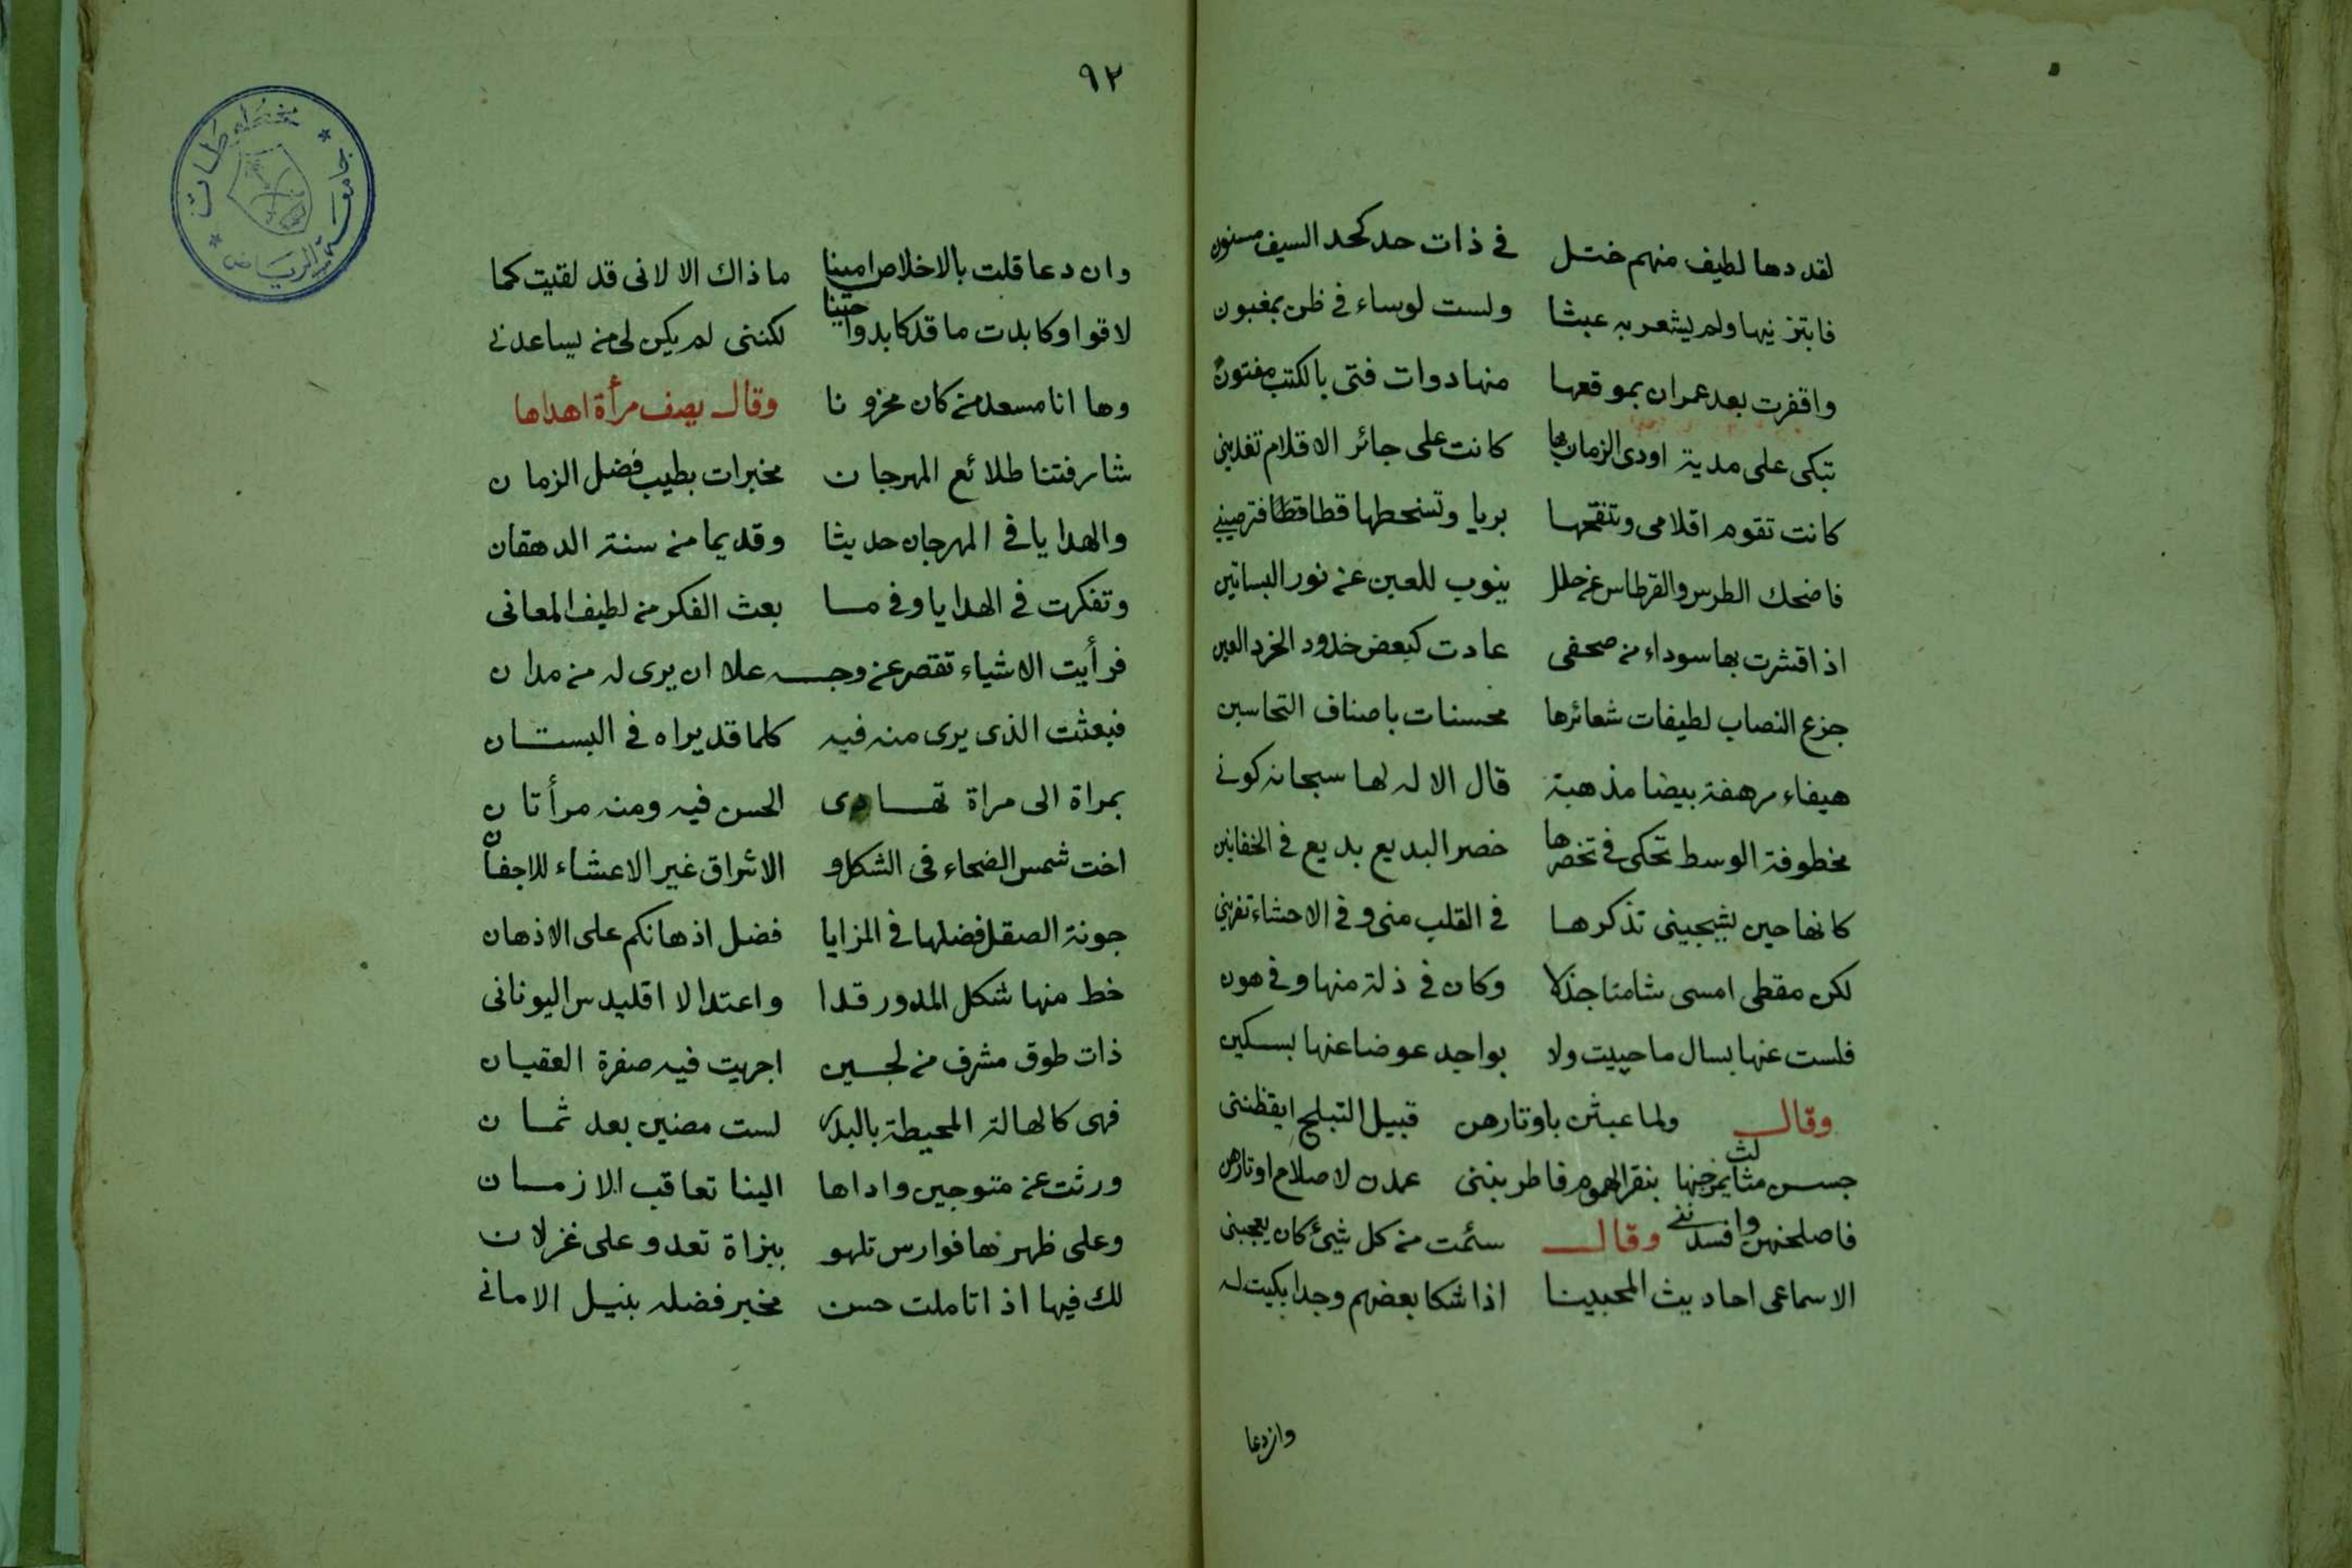 لقد دها لطيف منهم ختل في ذات حد كحد السيف مسنون
فابتزنيها ولم يشعر به عبثا ولست لوساء في ظن بمغبون
واقفرت بعد عمران بموقعها منها دوات فتى بالكتب مفتون
تبكى على مدية اودى الزمان بها كانت على جائر الاقلام تغدينى
كانت تقوم اقلامى وتنقحها بريا وتسخطها قطا فترضينى
فاضحك الطرس والقرطاس عن حلل ينوب للعين عن نور البساتين
اذا قشرت بها سوداء من صحفى عادت كبعض خدود الخرد العين
جزع النصاب لطيفات شعائرها محسنات باصناف التحاسين
هيفاء مرهفة بيضا مذهبة قال الاله لها سبحانه كونى
مخطوفة الوسط تحكى فى تخصرها خصر البديع بديع فى الخفاتين
كانها حين يشجينى تذكرها فى القلب منى وفى الاحشاء تفرينى
لكن مقطى امسى شامتا جذلا وكان فى ذلة منها وفى هون
فلست عنها بسال ما حييت ولا بواجد عوضا عنها بسكين
وقال ولما عبثن باوتارهن قبيل التبلج ايقظننى
جسسن مثالث يمزجنها بنقر الهموم فاطربننى عمدن لاصلاح اوتارهن
فاصلحنهن وافسدننى وقال سئمت من كل شيئ كان يعجبنى
الاسماعى احاديث المحبينا اذا شكا بعضهم وجدا بكيت له
وان دعا
٩٢
وان دعا قلت بالاخلاص امينا ما ذاك الا لانى قد لقيت كما
لاقوا وكابدت ما قد كابدوا حينا لكننى لم يكن لى من يساعدنى
وها انا مسعد من كان محزونا وقال يصف مرأة اهداها
شارفتنا طلائع المهرجان مخبرات بطيب فضل الزمان
والهدايا فى المهرجان حديثا وقديما من سنة الدهقان
وتفكرت فى الهدايا وفى ما بعث الفكر من لطيف المعانى
فرأيت الاشياء تقصر عن وجه علا ان يرى له من مدان
فبعثت الذى يرى منه فيه كلما قد يراه فى البستان
بمراة الى مراة تهادى الحسن فيه ومنه مرأتان
اخت شمس الضحاء فى الشكل و الاشراق غير الاعشاء للاجفان
جونة الصقل فضلها فى المزايا فضل اذهانكم على الاذهان
خط منها شكل المدور قدا واعتدالا اقليدس اليونانى
ذات طوق مشرف من لجين اجريت فيه صفرة العقيان
فهى كالهالة المحيطة بالبدر لست مضين بعد ثمان
ورثت عن متوجين واداها الينا تعاقب الازمان
وعلى ظهرها فوارس تلهو ببزاة تعدو على غزلان
لك فيها اذا تاملت حسن مخبر فضله بنيل الامانى
مخطوطات
جامعة الرياض